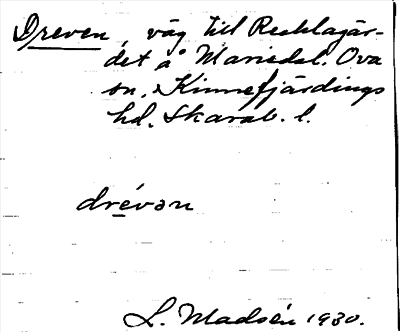 Dreven, väg till Recklagär-
det å Mariedal. Ova
sn, Kinnefjärdings
hd. Skarab. l.
drévan
L. Madsén 1930.